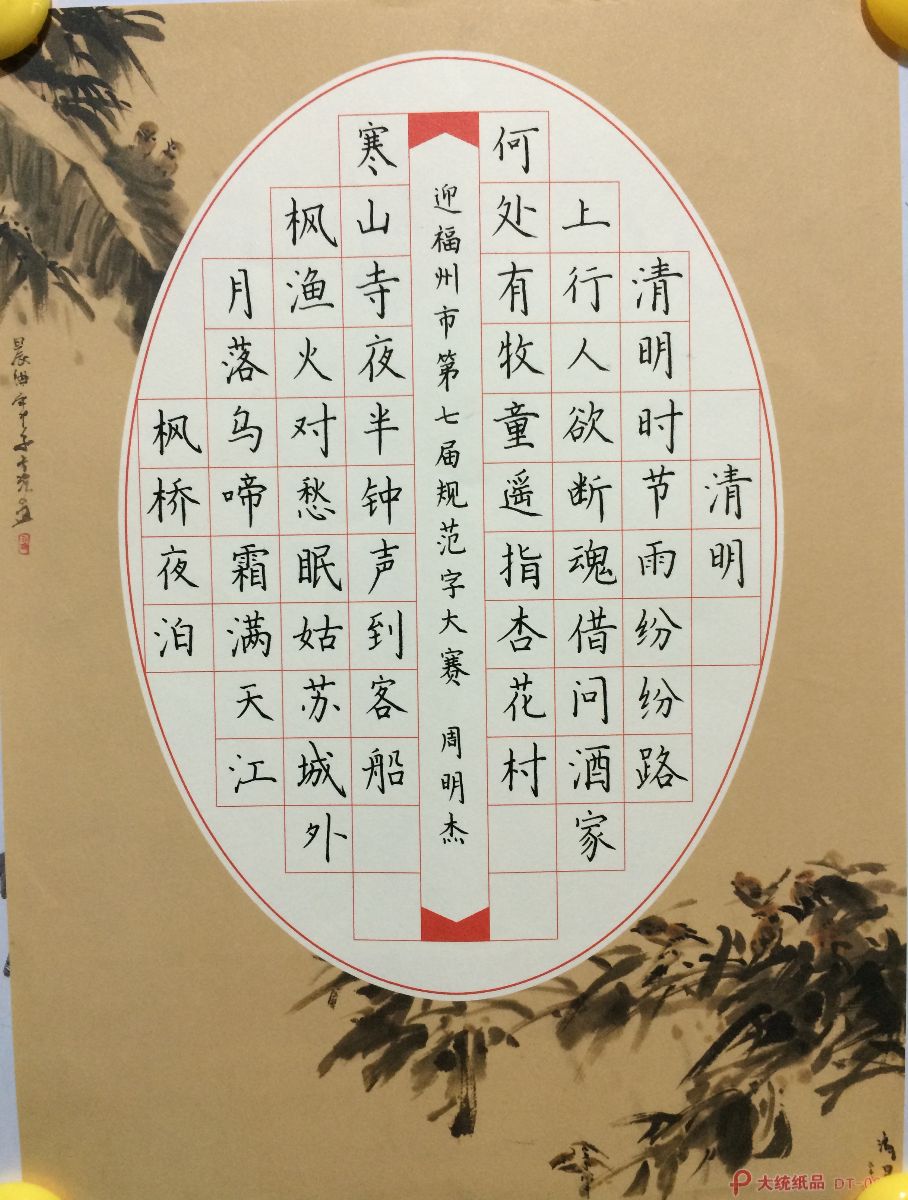 清明
清明时节雨纷纷路
上行人欲断魂借问酒家
何处有牧童遥指杏花村
迎福州市第七届规范字大赛 周明杰
枫桥夜泊
月落乌啼霜满天江
枫渔火对愁眠姑苏城外
寒山寺夜半钟声到客船
大统纸品